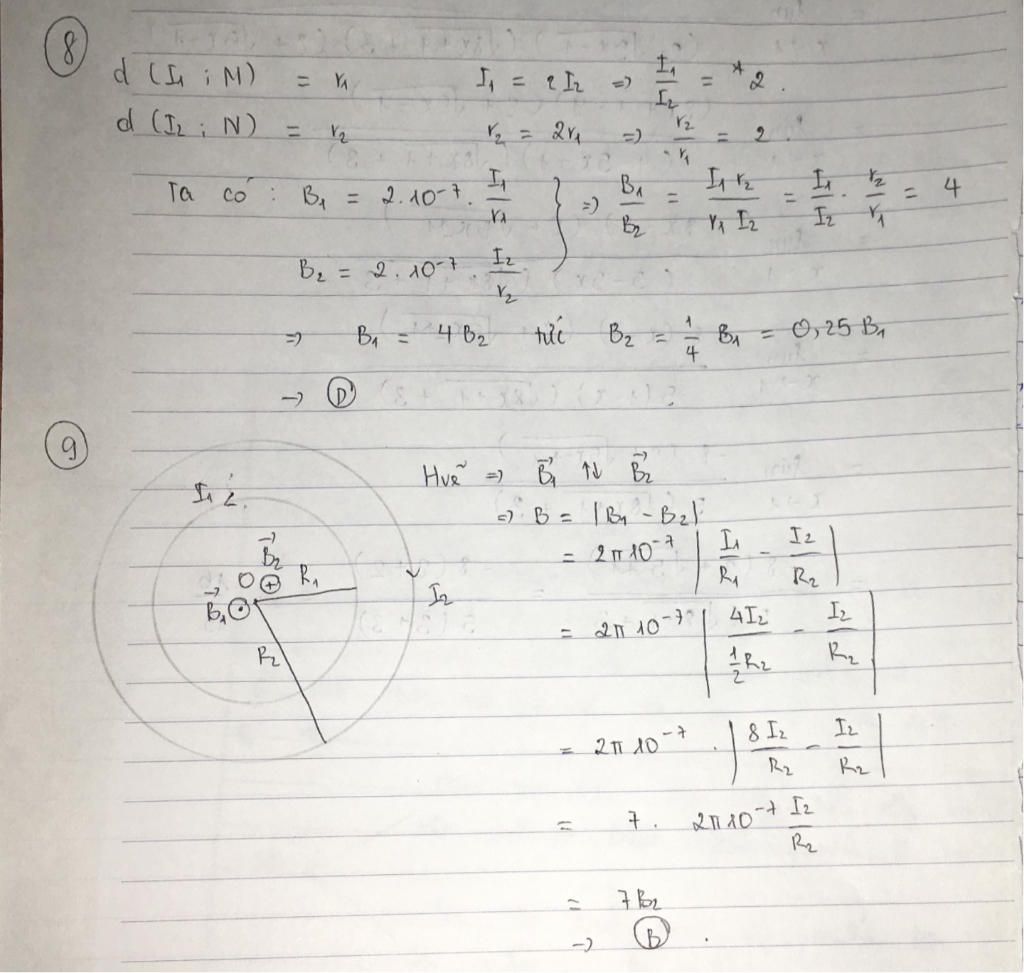 ⑧
d (I₁ ; M) = r₁ I₁ = 2I₂ => I₁/I₂ = 2.
d (I₂ ; N) = r₂ r₂ = 2r₁ => r₂/r₁ = 2.
Ta có : B₁ = 2.10⁻⁷. I₁/r₁ } => B₁/B₂ = I₁ r₂ / r₁ I₂ = I₁/I₂ . r₂/r₁ = 4
B₂ = 2.10⁻⁷ I₂/r₂
=> B₁ = 4B₂ tức B₂ = 1/4 B₁ = 0,25 B₁
→ Ⓓ
⑨
I₁
B₂
O ⊕ R₁
B₁ ⊙
I₂
R₂
Hvẽ => B₁ ↑↓ B₂
=> B = |B₁ - B₂|
= 2π10⁻⁷ | I₁/R₁ - I₂/R₂ |
= 2π10⁻⁷ | 4I₂ / ½R₂ - I₂/R₂ |
= 2π10⁻⁷ . | 8I₂/R₂ - I₂/R₂ |
= 7. 2π10⁻⁷ I₂/R₂
= 7B₂
→ Ⓑ.